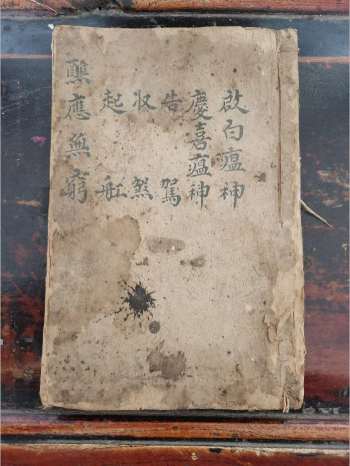 啟白瘟神
慶喜瘟神
告駕
收煞
起舡
應無窮